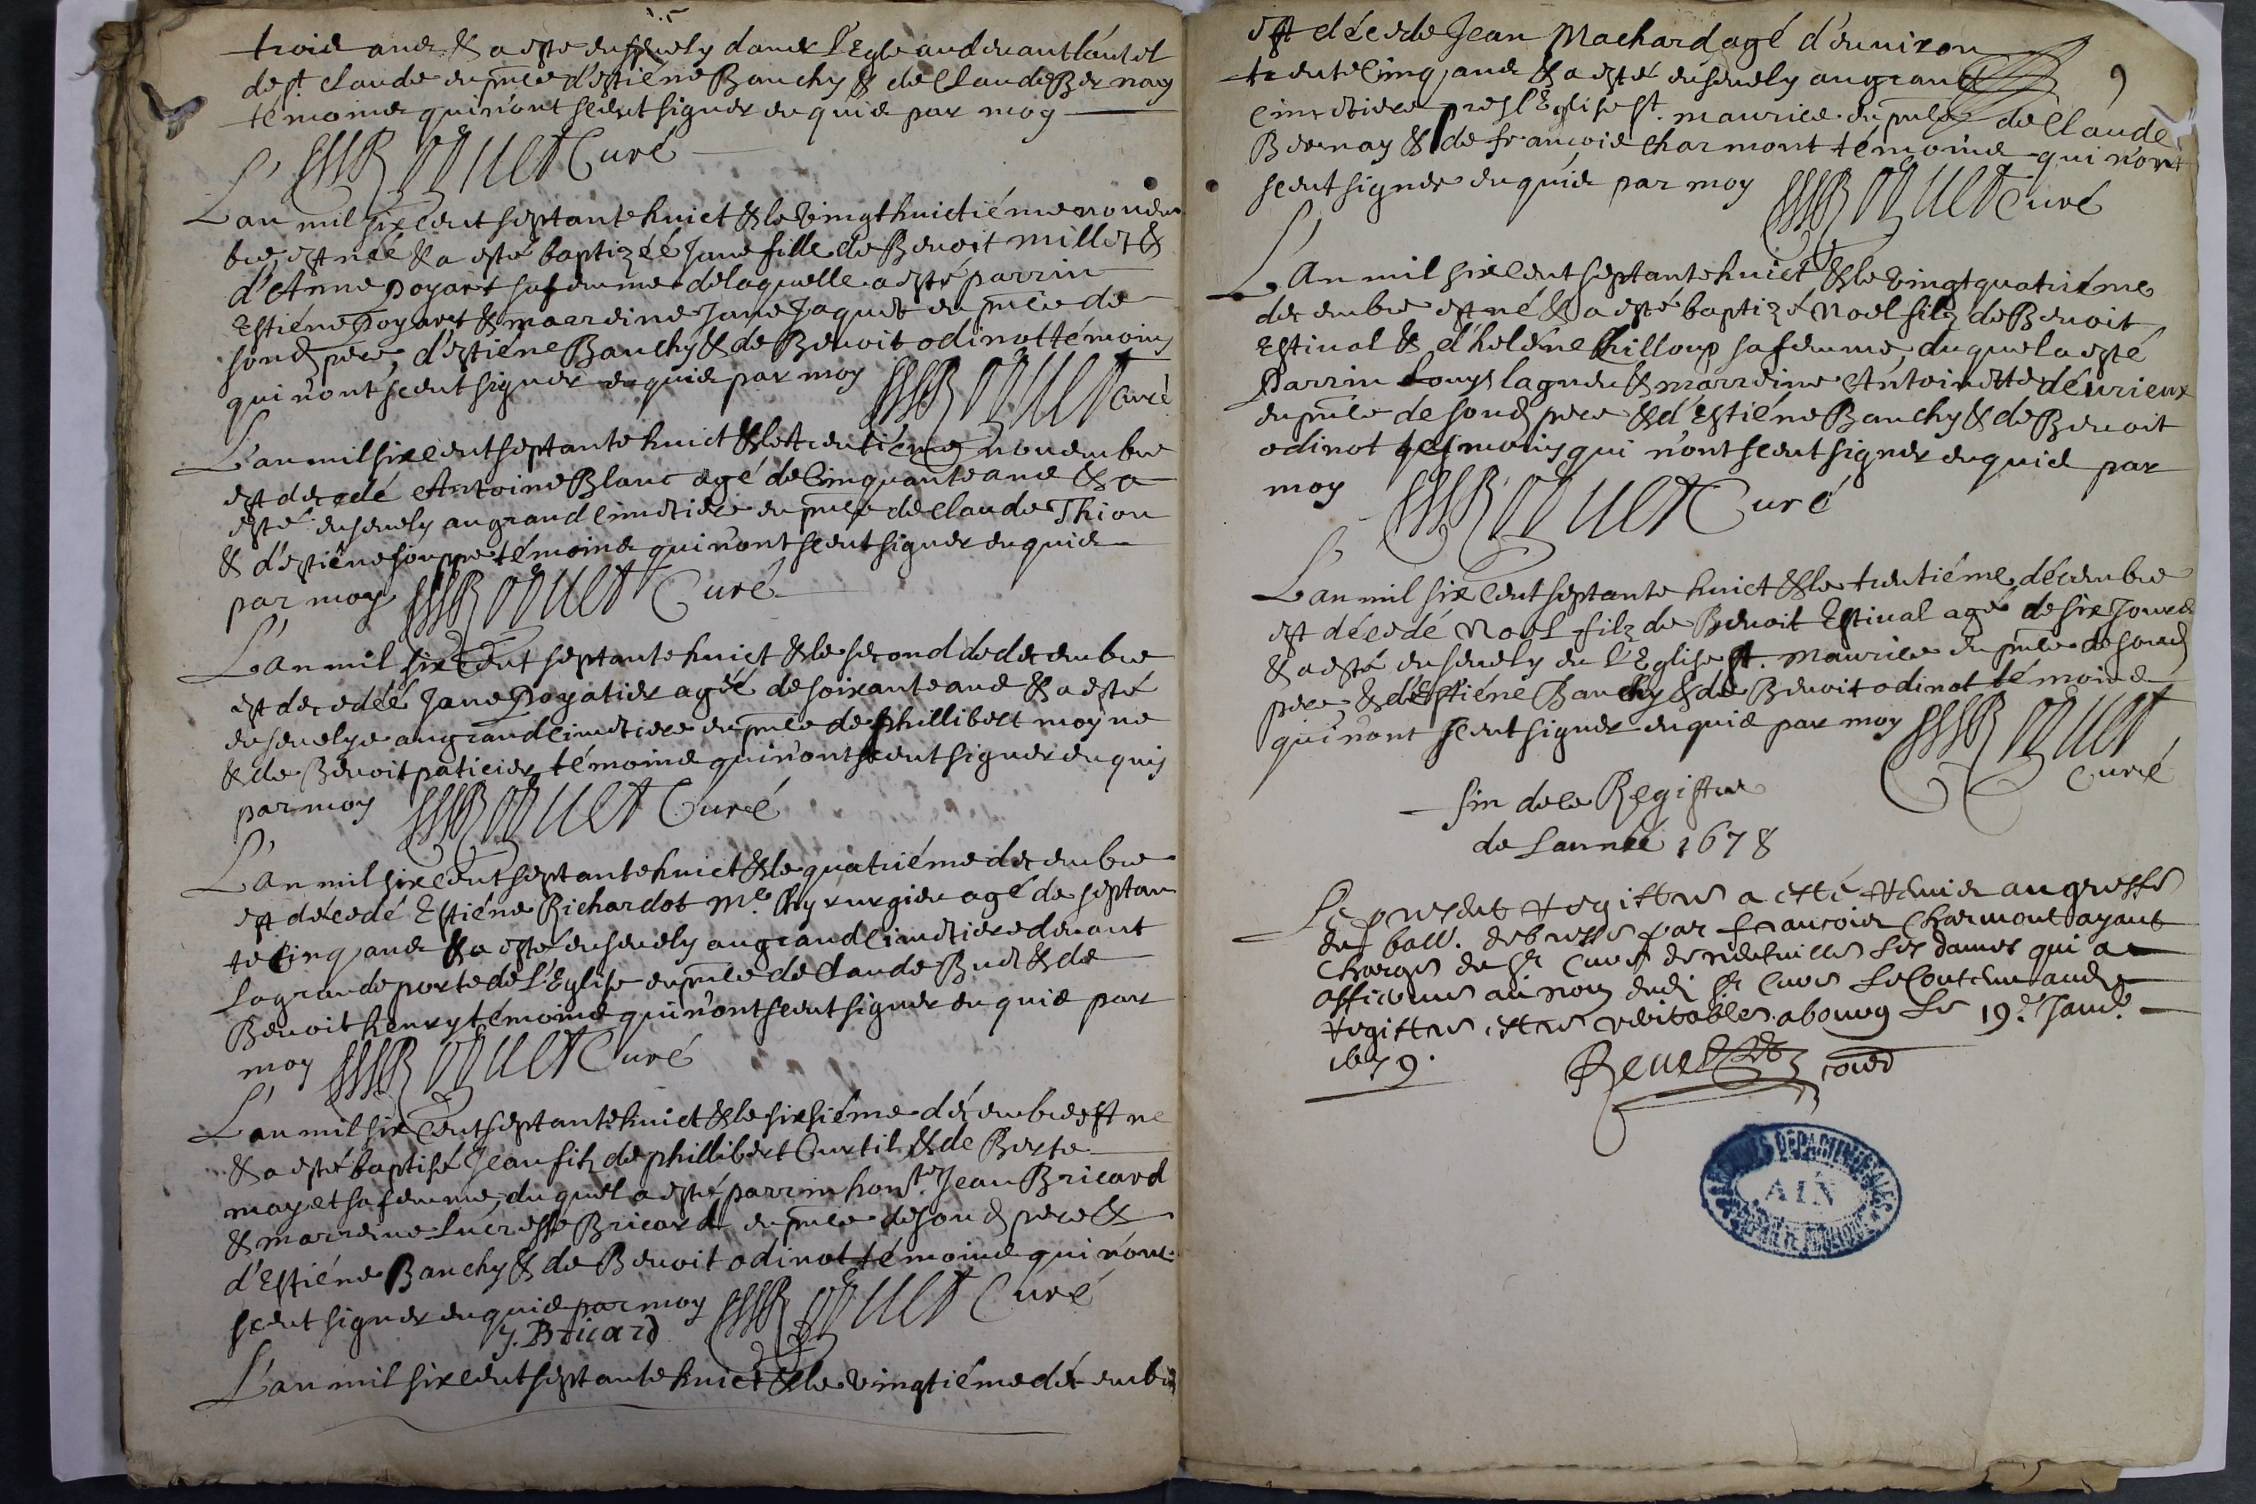 trois ans & a esté ensevely dans l'Eglᵉ au devant l'autel
de sᵗ Claude en pnce d'estiéne Banchy & de Claude Bernay
témoins qui n'ont sceut signer en quis par moy
Curé
L'an mil six cent septante huict & le vingt huictiéme novem
bre est née & a esté baptizéé Jane fille de Benoit millet &
d'Anne Poyart sa femme de laquelle a esté parrin
Estiéne Poyart & marreine Jane Jaquet en pnce de
son d pere, d'estiéne Banchy & de Benoit odinot témoins
qui n'ont sceut signer en quis par moy Curé
L'an mil six cent septante huict & le trentiéme novembre
est decedé Antoine Blanc agé de Cinquante ans & a
esté ensevely au grand Cimetiere en pnce de Claude Thion
& d'estiéne souppe témoins qui n'ont sceut signer en quis
par moy Curé
L'an mil six Cent septante huict & le second de decembre
est decedéé Jane Poyatier agéé de soixante ans & a esté
ensevelye au grand Cimetiere en pnce de phillibert moyne
& de Benoit paticier témoins qui n'ont sceut signer en quis
par moy Curé
L'an mil six cent septante huict & le quatriéme decembre
est décedé Estiéne Richardot mᵉ Chyrurgien agé de septan
te Cinq ans & a esté ensevely au grand Cimetiere devant
la grande porte de l'Eglise en pnce de Claude Buet & de
Benoit henry témoins qui n'ont sceut signer en quis par
moy Curé
L'an mil six Cent septante huict & le sixsiéme décembre est né
& a esté baptisé Jean filz de phillibert Curtil & de Berte
mayet sa femme, du quel a esté parrin honᵗᵉ Jean Bricard
& marrene Lucresse Bricard en pnce de son d pere &
d'Estiéne Banchy & de Benoit odinot témoins qui n'ont
sceut signer en quis par moy Curé
J. Bricard
L'an mil six cent septante huict & le vingtiéme décembre
est décede Jean Machard agé d'environ
trente Cinq ans & a esté ensevely au grand
9
Cimetiere pres l'Eglise sᵗ. maurice en pnce de Claude
Bernay & de françois Charmont témoins qui n'ont
sceut signer en quis par moy Curé
L'An mil six cent septante huict & le vingt quatriéme
decembre est né & a esté baptizé Noel filz de Benoit
Estival & d'heléne sa femme, du quel a esté
Parrin Louys lagneu & marreine Antoinette dévrieux
en pnce de son d pere & d'Estiéne Banchy & de Benoit
odinot tesmoins qui n'ont sceut signer en quis par
moy Curé
L'an mil six Cent septante huict & le trentiéme décembre
est décedé Noel filz de Benoit Estival agé de six Jours
& a esté ensevely en l'Eglise sᵗ. maurice en pnce de son d
pere & d'Estiéne Banchy & de Benoit odinot témoins
qui n'ont sceut signer en quis par moy
Curé
fin de ce Registre
de Lannéé 1678
Le present registre a esté remis au greffe
du ball. de bresse par françois Charmont ayant
charge du sʳ Curé de les dames qui a
affirmé au nom dud sʳ Curé le contenu aud
registre estre veritable. a bourg Le 19.ᵉ Janv.
1679.
ARCHIVES DÉPARTEMENTALES
AIN